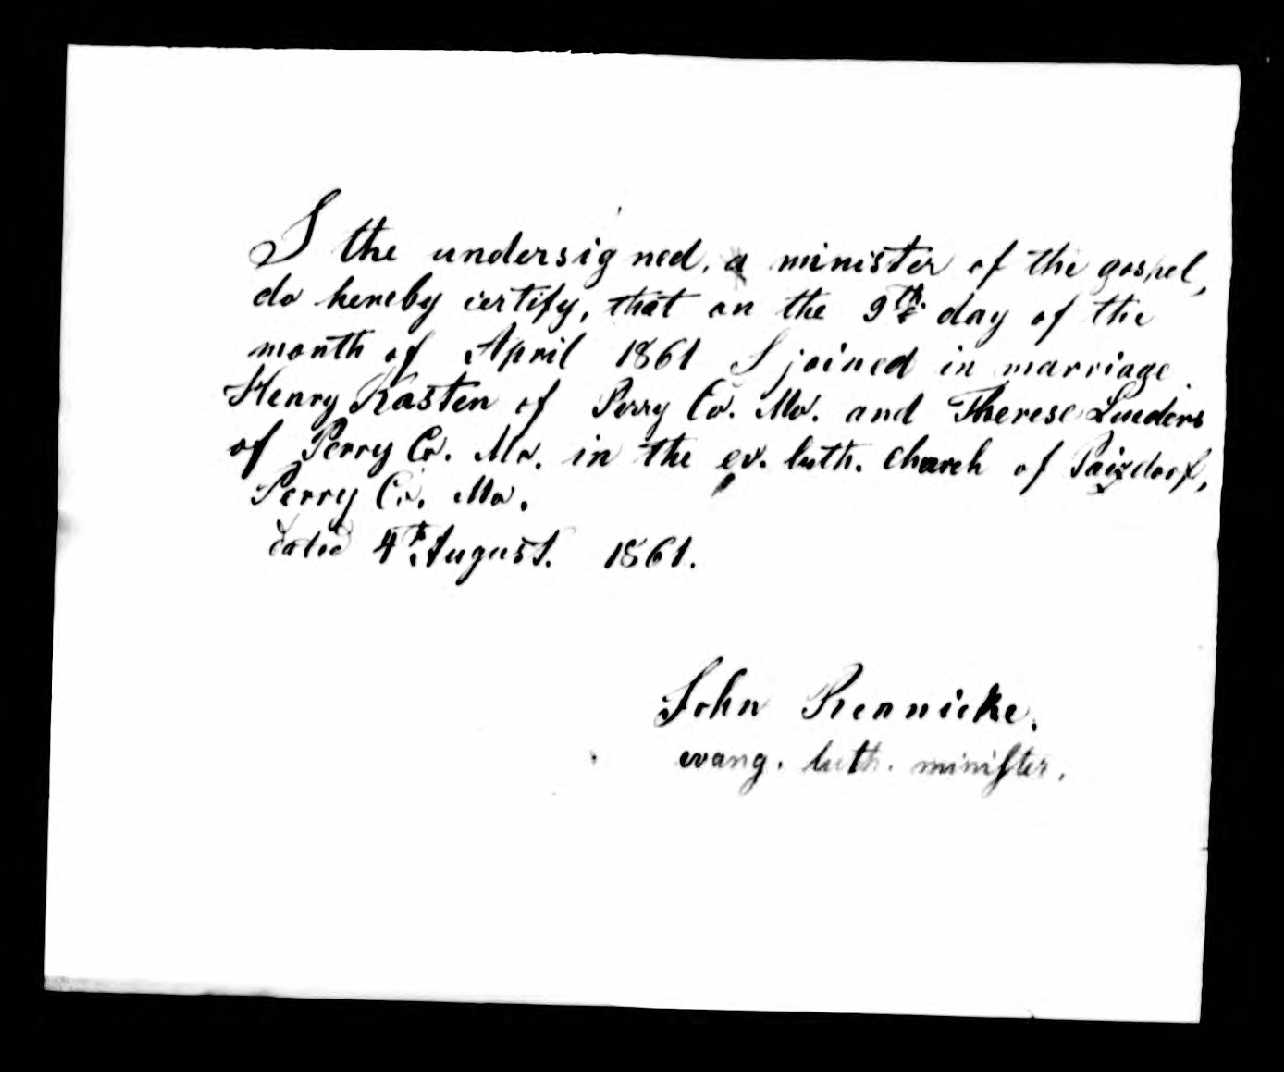 I the undersigned, a minister of the gospel,
do hereby certify, that on the 9th day of the
month of April 1861 I joined in marriage
Henry Kasten of Perry Co. Mo. and Therese Lueders
of Perry Co. Mo. in the ev. luth. church of Paizdorf,
Perry Co. Mo.
dated 4th August. 1861.
John Rennicke.
evang. luth. minister.